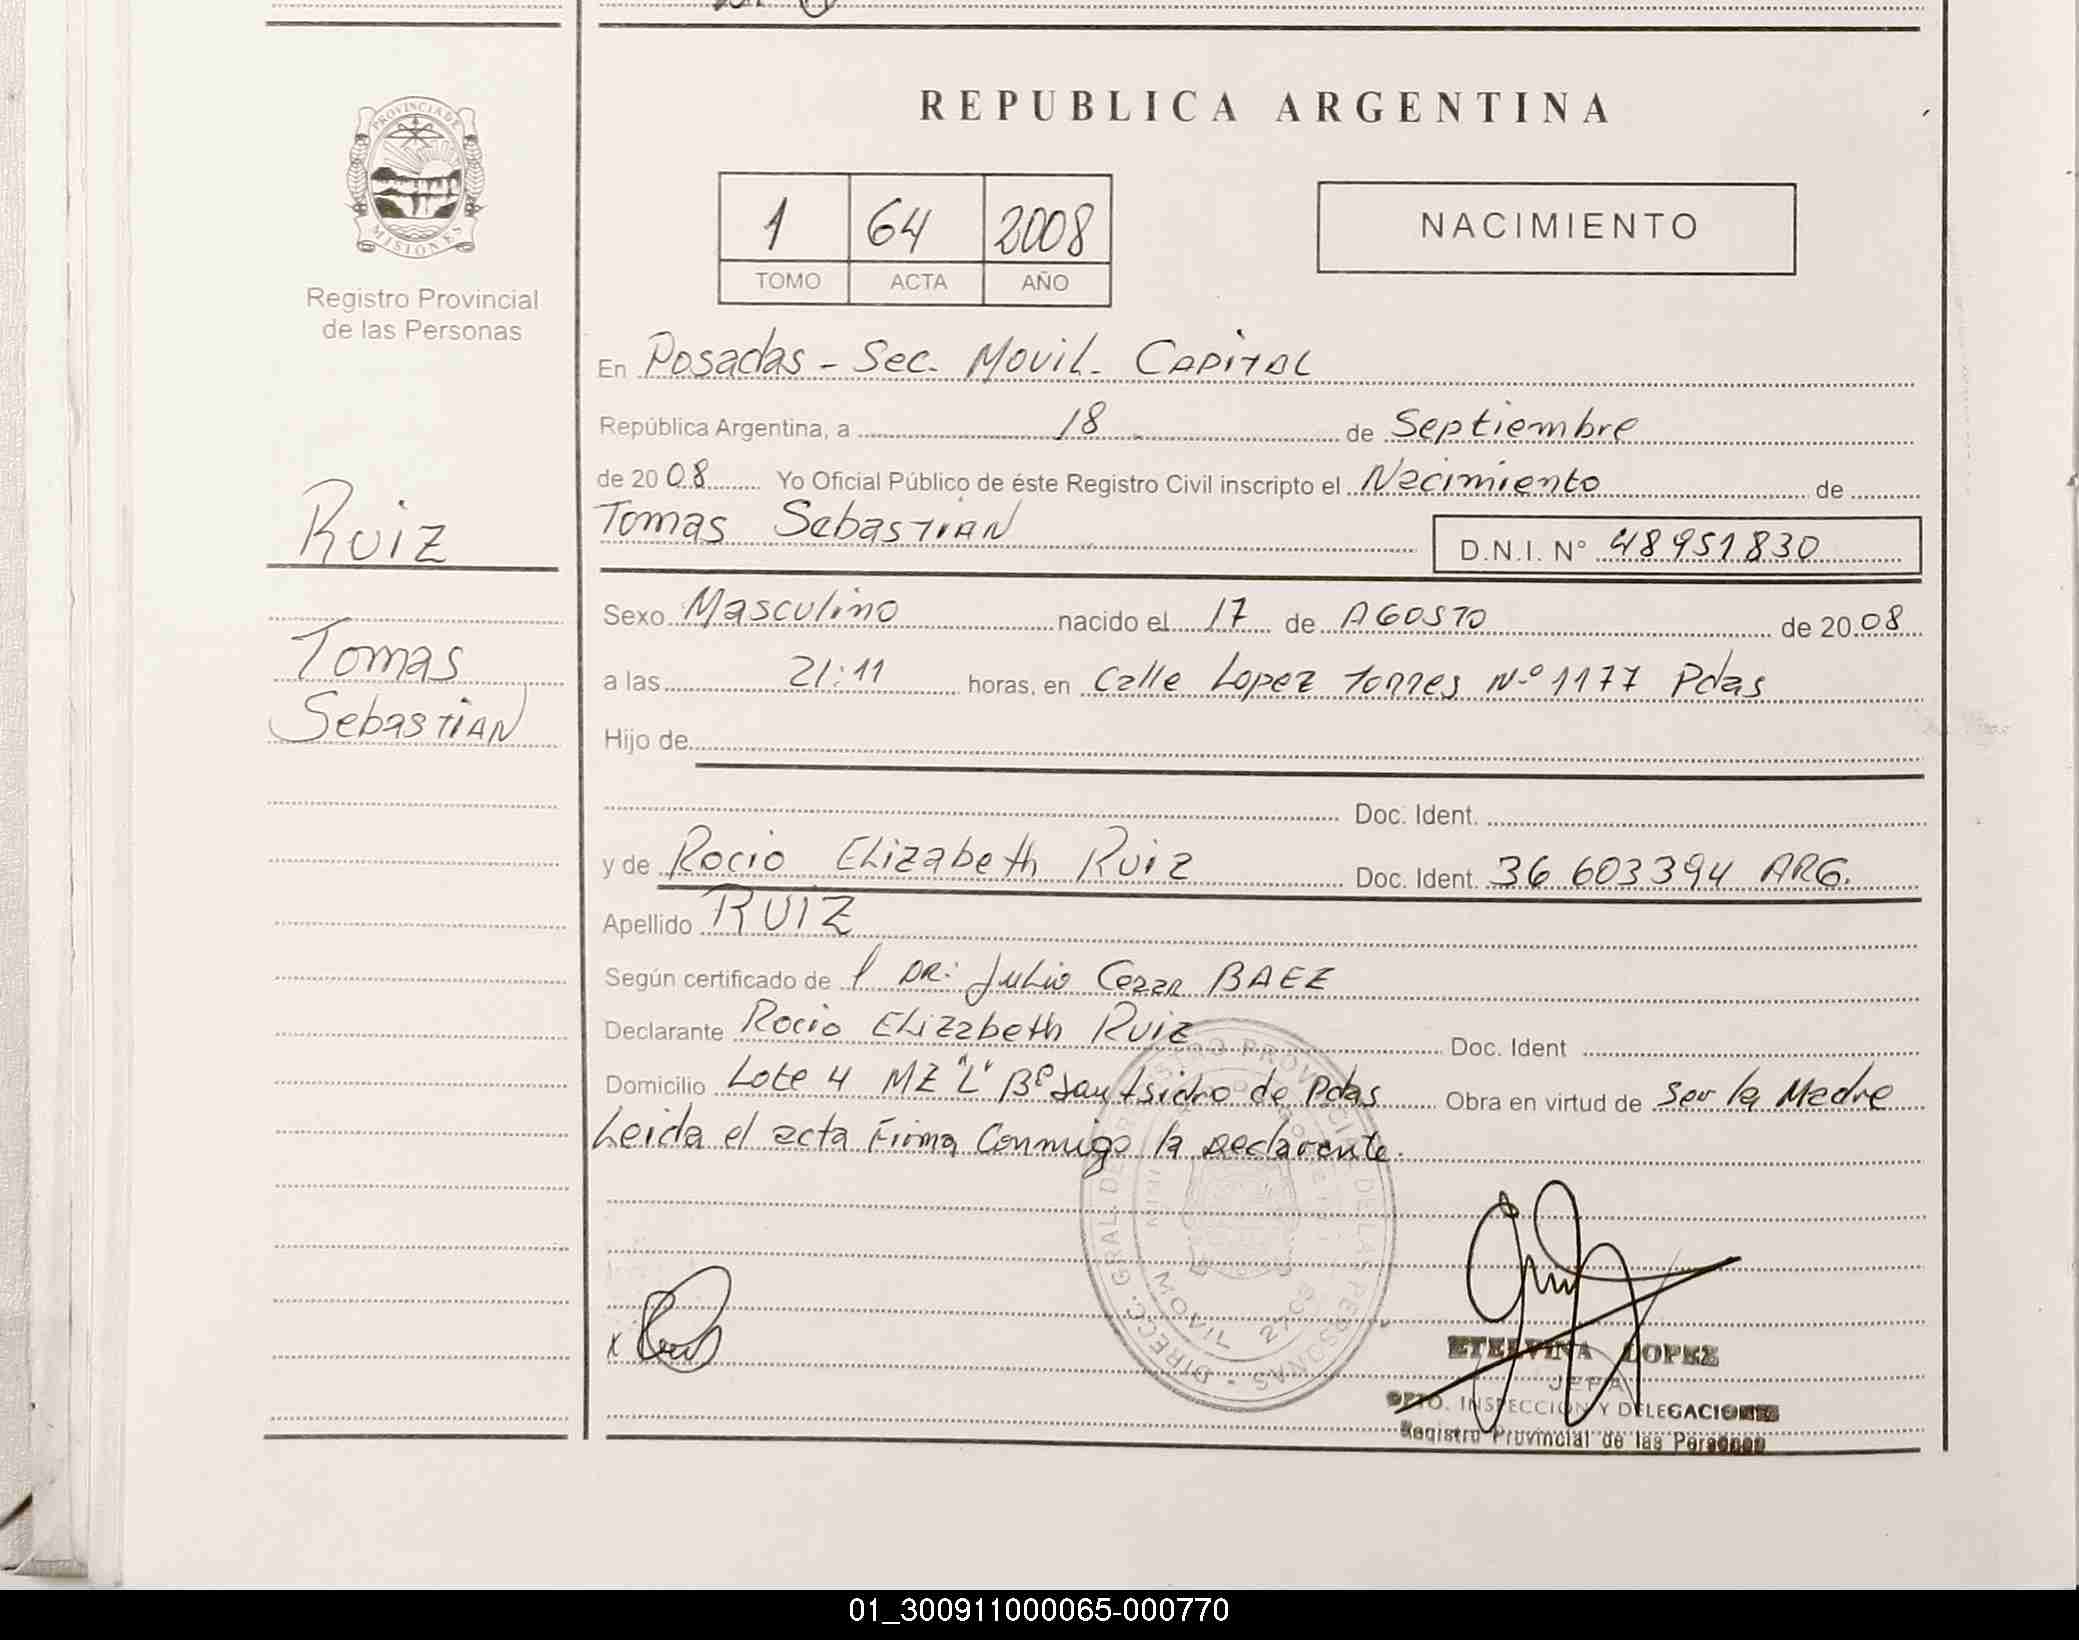 REPUBLICA ARGENTINA
PROVINCIA DE
MISIONES
Registro Provincial
de las Personas
1 64 2008
TOMO ACTA AÑO
NACIMIENTO
Ruiz
Tomas
Sebastian
En Posadas - Sec. Movil - Capital
República Argentina, a 18 de Septiembre
de 20 08 Yo Oficial Público de éste Registro Civil inscripto el Nacimiento de
Tomas Sebastian D.N.I. N° 48951830
Sexo Masculino nacido el 17 de AGOSTO de 20 08
a las 21:11 horas, en Calle Lopez Torres Nº 1177 Pdas
Hijo de
Doc. Ident.
y de Rocio Elizabeth Ruiz Doc. Ident. 36 603394 ARG.
Apellido RUIZ
Según certificado de l DR: Julio Cezar BAEZ
Declarante Rocio Elizabeth Ruiz Doc. Ident
Domicilio Lote 4 MZ "L" Bº San Isidro de Pdas Obra en virtud de Ser la Madre
Leida el acta Firma Conmigo la Declarante.
DIRECC. GRAL. DE REGISTRO PROVINCIAL DE LAS PERSONAS
MOVIL 2708
x
ETELVINA LOPEZ
JEFA
DPTO. INSPECCION Y DELEGACIONES
Registro Provincial de las Personas
01_300911000065-000770